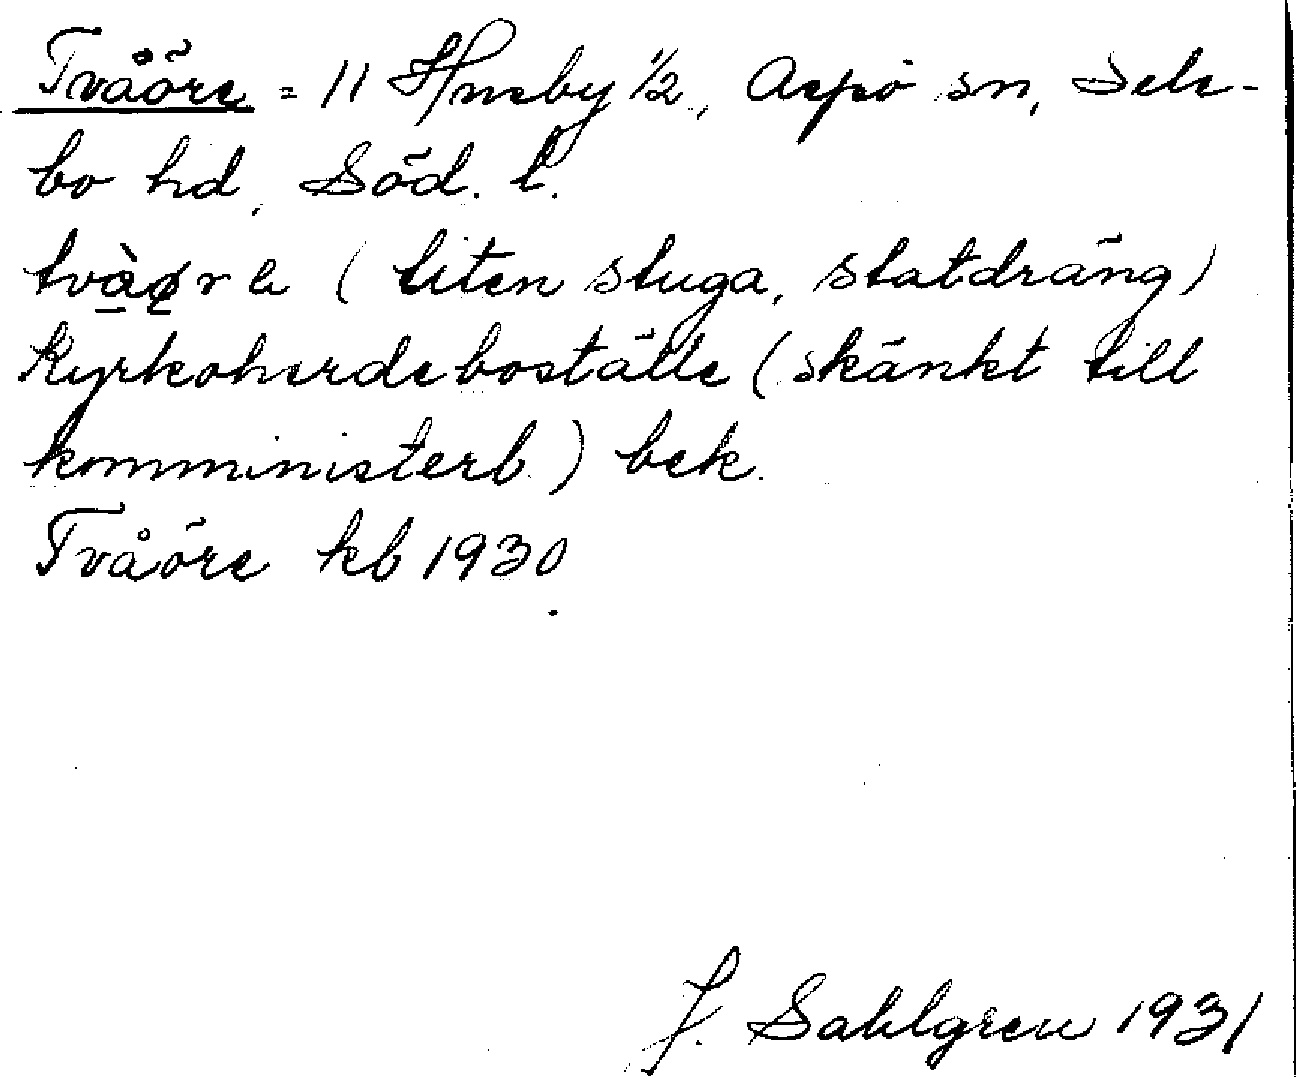 Tvåöre = 11 Husby ½, Aspö sn, Sele-
bo hd, Söd. l.
tvàø̨re (liten stuga, statdräng)
Kyrkoherdeboställe (skänkt till
komministerb.) bek.
Tvåöre kb 1930
J. Sahlgren 1931